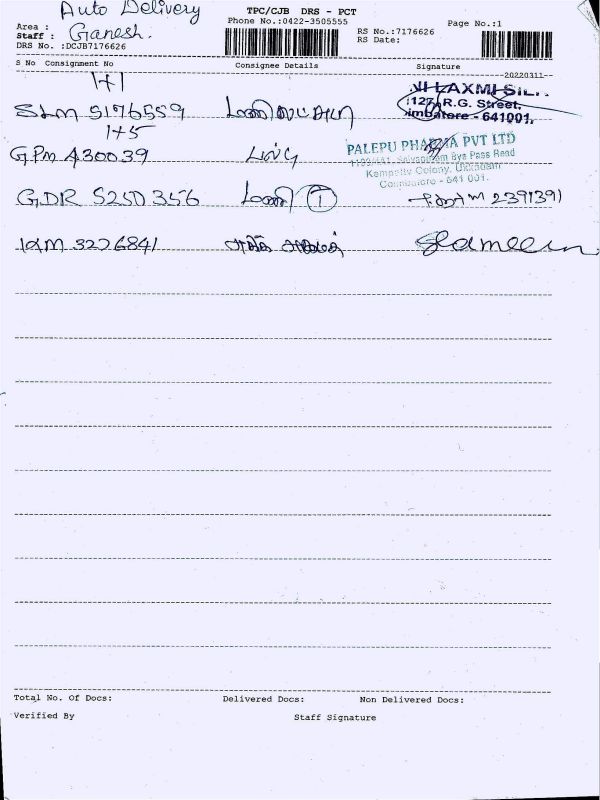 Auto Delivery
TPC/CJB DRS - PCT
Phone No.:0422-3505555
Page No.:1
Area :
Staff : Ganesh.
RS No.:7176626
DRS No. :DCJB7176626
RS Date:
S No Consignment No Consignee Details Signature
20220311
1+1
SLM 5176559
LAXMI SIL
1127, R.G. Street,
imbatore - 641001.
1+5
GPM 430039
PALEPU PHARMA PVT LTD
Bye Pass Road
Kempatty Colony, Ukkadam
Coimbatore - 641 001.
GDR 5250356 மணி 1 2391391
KM 3226841
Total No. Of Docs: Delivered Docs: Non Delivered Docs:
Verified By Staff Signature